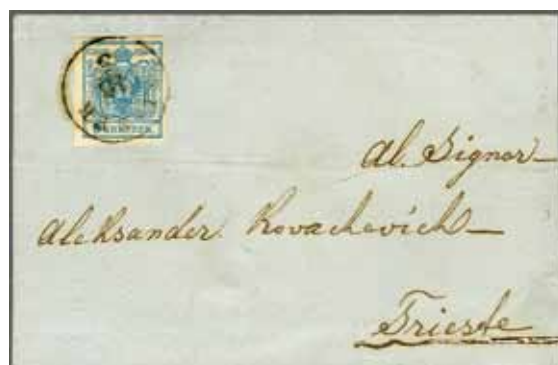 Al. Signor
Aleksander Kovachevich
Trieste